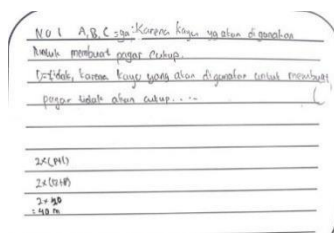 No 1 A, B, C = ya: Karena kayu yg akan di gunakan
untuk membuat pagar cukup.
tidak, karena kayu yang akan digunakan untuk membuat
pagar tidak akan cukup....
2x(P+l)
2x(12+8)
= 40 m